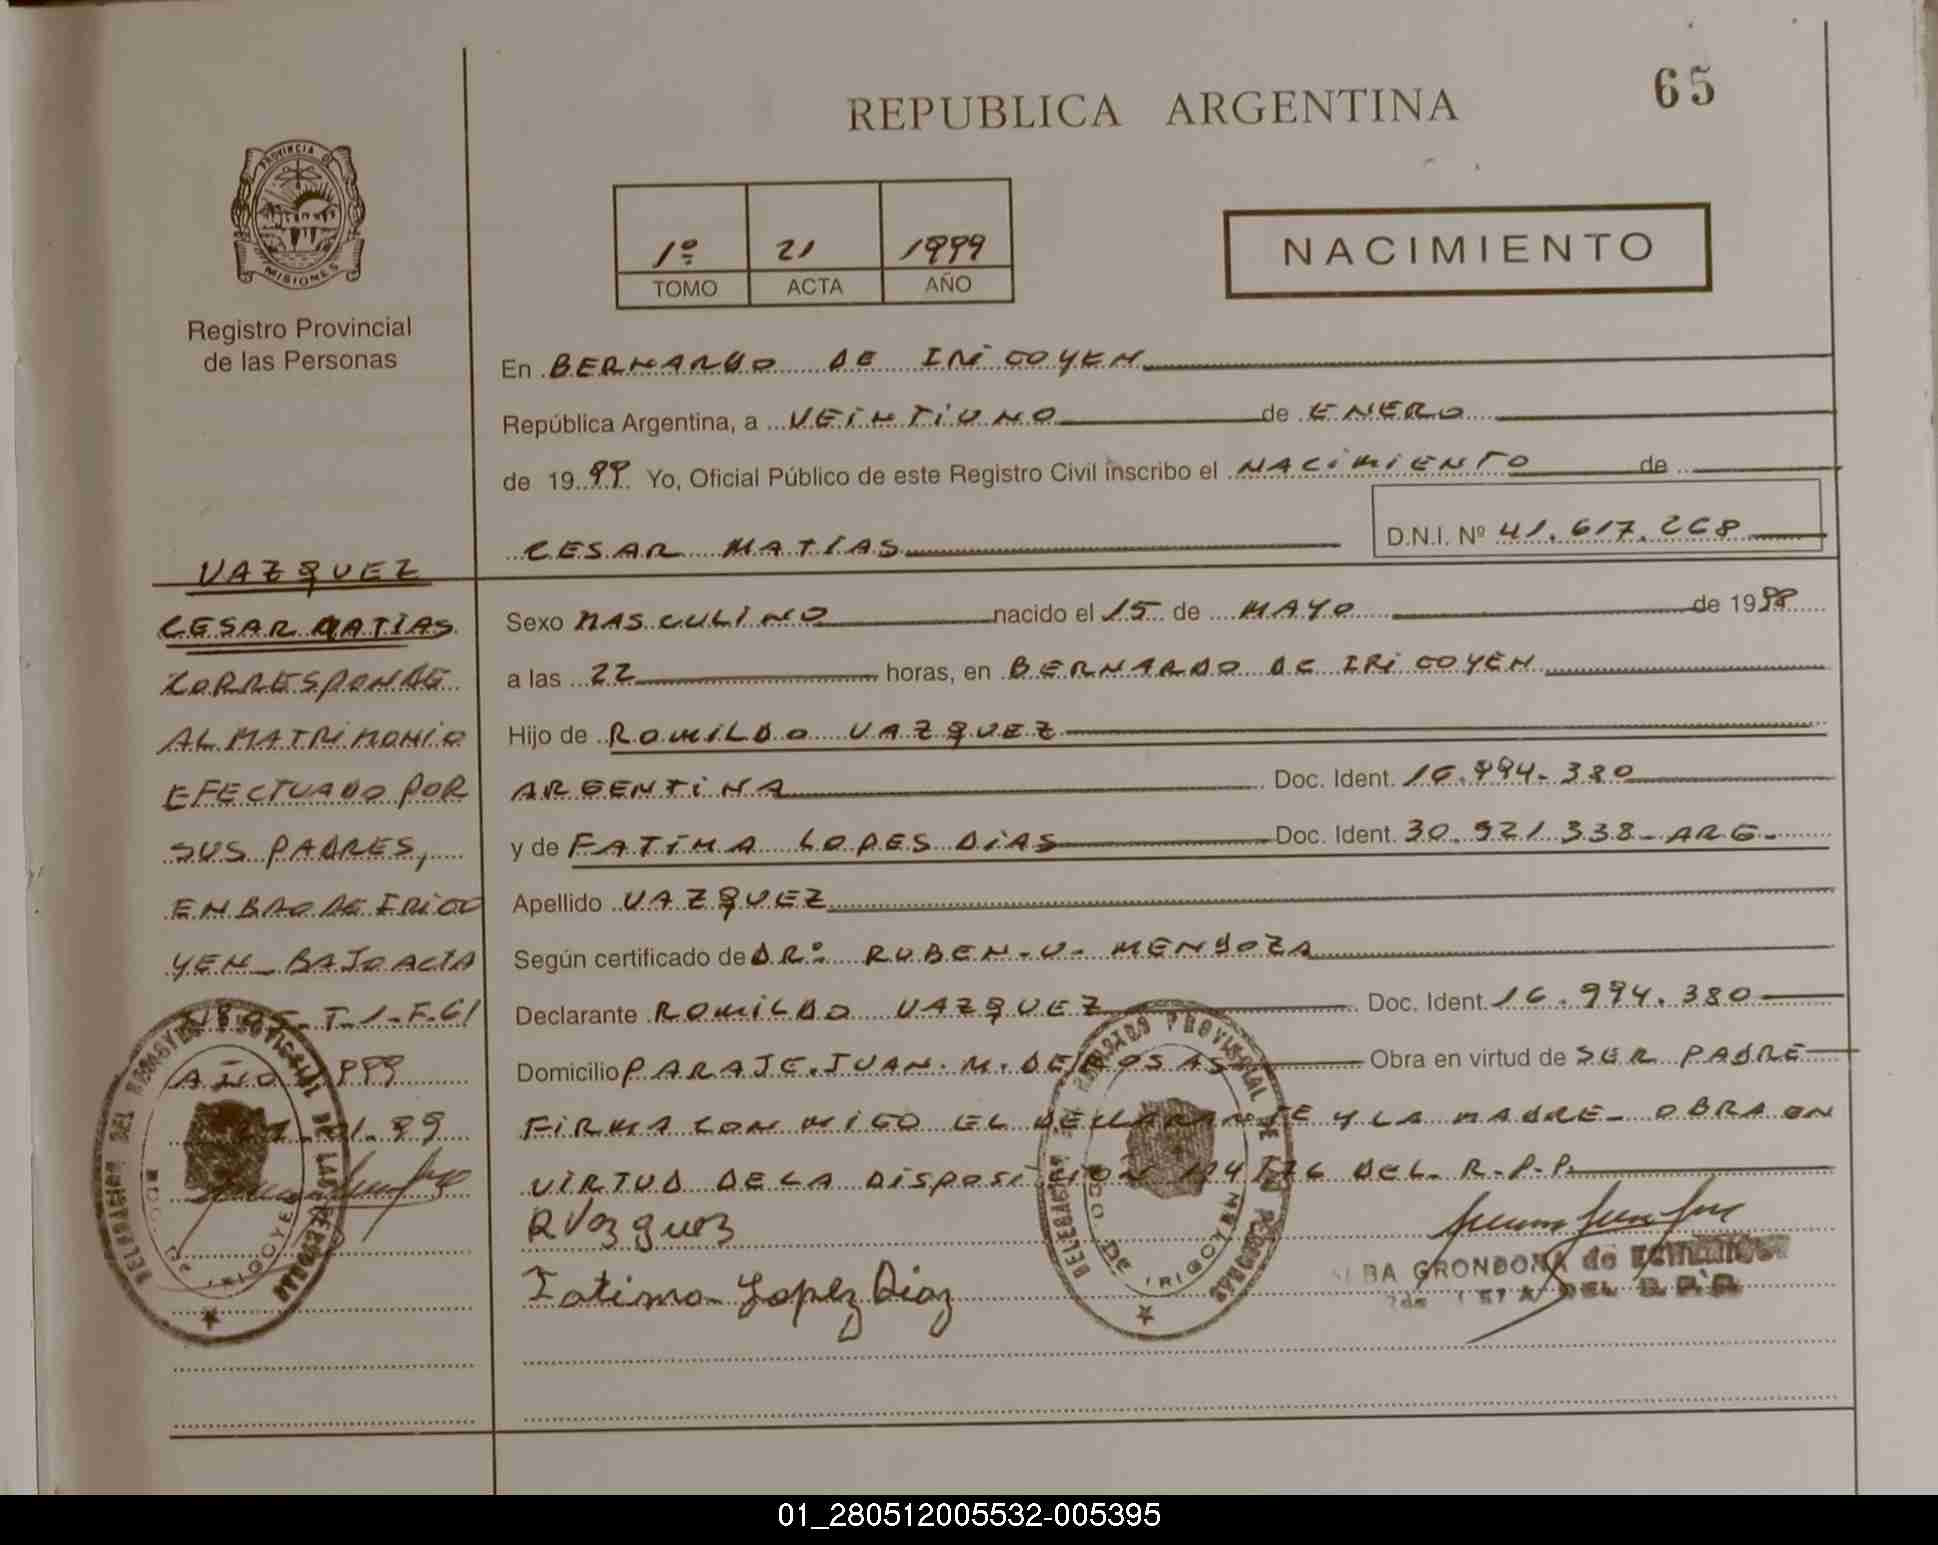 65
REPUBLICA ARGENTINA
PROVINCIA DE
MISIONES
Registro Provincial
de las Personas
1º 21 1999
TOMO ACTA AÑO
NACIMIENTO
En BERNARDO DE IRIGOYEN
República Argentina, a VEINTIUNO de ENERO
de 1999 Yo, Oficial Público de este Registro Civil inscribo el NACIMIENTO de
CESAR MATIAS D.N.I. Nº 41.617.268
Sexo MASCULINO nacido el 15 de MAYO de 1998
a las 22 horas, en BERNARDO DE IRIGOYEN
Hijo de ROMILDO VAZQUEZ
ARGENTINA Doc. Ident. 16.994.380
y de FATIMA LOPES DIAS Doc. Ident. 30.921.338-ARG-
Apellido VAZQUEZ
Según certificado de DR: RUBEN-U-MENDOZA
Declarante ROMILDO VAZQUEZ Doc. Ident. 16.994.380
Domicilio PARAJE.JUAN.M.DE ROSAS Obra en virtud de SER PADRE
FIRMA CON MIGO EL DECLARANTE Y LA MADRE- OBRA EN
VIRTUD DE LA DISPOSICION DEL-R-P-P.
R Vazquez
Fatima Lopez Diaz
ALBA GRONDONA de
DEL R.P.P.
DELEGACION DEL REGISTRO PROVINCIAL DE LAS PERSONAS
BDO DE IRIGOYEN
VAZQUEZ
CESAR MATIAS
CORRESPONDE
AL MATRIMONIO
EFECTUADO POR
SUS PADRES,
EN BDO DE IRIGO
YEN-BAJO ACTA
T-1-F.61
AÑO 1999
21-01-99
DELEGACION DEL REGISTRO PROVINCIAL DE LAS PERSONAS
BDO DE IRIGOYEN
01_280512005532-005395